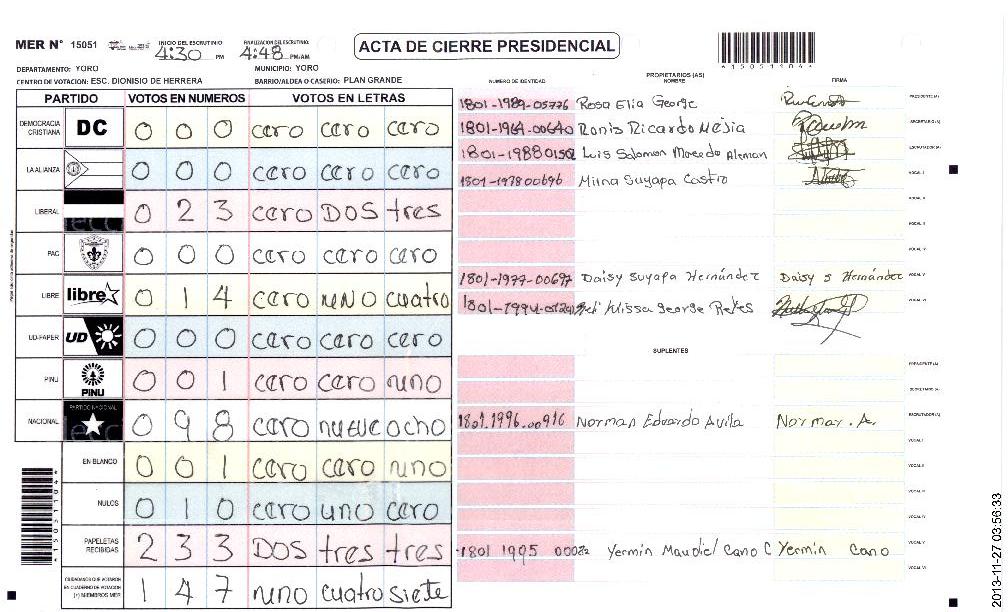 MER N° 15051 INICIO DEL ESCRUTINIO 4:30 PM FINALIZACION DEL ESCRUTINIO: 4:48 PM/AM
ACTA DE CIERRE PRESIDENCIAL
*15051104*
DEPARTAMENTO: YORO MUNICIPIO: YORO
CENTRO DE VOTACION: ESC. DIONISIO DE HERRERA BARRIO/ALDEA O CASERIO: PLAN GRANDE
PARTIDO VOTOS EN NUMEROS VOTOS EN LETRAS
DEMOCRACIA CRISTIANA DC 0 0 0 cero cero cero
LA ALIANZA 0 0 0 cero cero cero
LIBERAL 0 2 3 cero DOS tres
PAC 0 0 0 cero cero cero
LIBRE libre 0 1 4 cero uno cuatro
UD-FAPER UD 0 0 0 cero cero cero
PINU PINU 0 0 1 cero cero uno
NACIONAL PARTIDO NACIONAL 0 9 8 cero nueve ocho
EN BLANCO 0 0 1 cero cero uno
NULOS 0 1 0 cero uno cero
PAPELETAS RECIBIDAS 2 3 3 DOS tres tres
CIUDADANOS QUE VOTARON EN CUADERNO DE VOTACION (+) MIEMBROS MER 1 4 7 uno cuatro siete
NUMERO DE IDENTIDAD PROPIETARIOS (AS) NOMBRE FIRMA
1801-1989-05776 Rosa Elia George PRESIDENTE(A)
1801-1964-00640 Ronis Ricardo Mejia SECRETARIO(A)
1801-1988 Luis Salomon Macedo Aleman ESCRUTADOR(A)
1801-1978 00696 Mirna Suyapa Castro VOCAL I
VOCAL II
VOCAL III
VOCAL IV
1801-1977-00697 Daisy Suyapa Hernández Daisy S Hernández VOCAL V
1801-1994 George Reyes VOCAL VI
SUPLENTES
PRESIDENTE(A)
SECRETARIO(A)
1801.1996.00916 Norman Eduardo Avila Norman. A. ESCRUTADOR(A)
VOCAL I
VOCAL II
VOCAL III
VOCAL IV
1801 1995 Yermin Maudiel Cano C Yermin Cano VOCAL V
VOCAL VI
2013-11-27 03:56:33